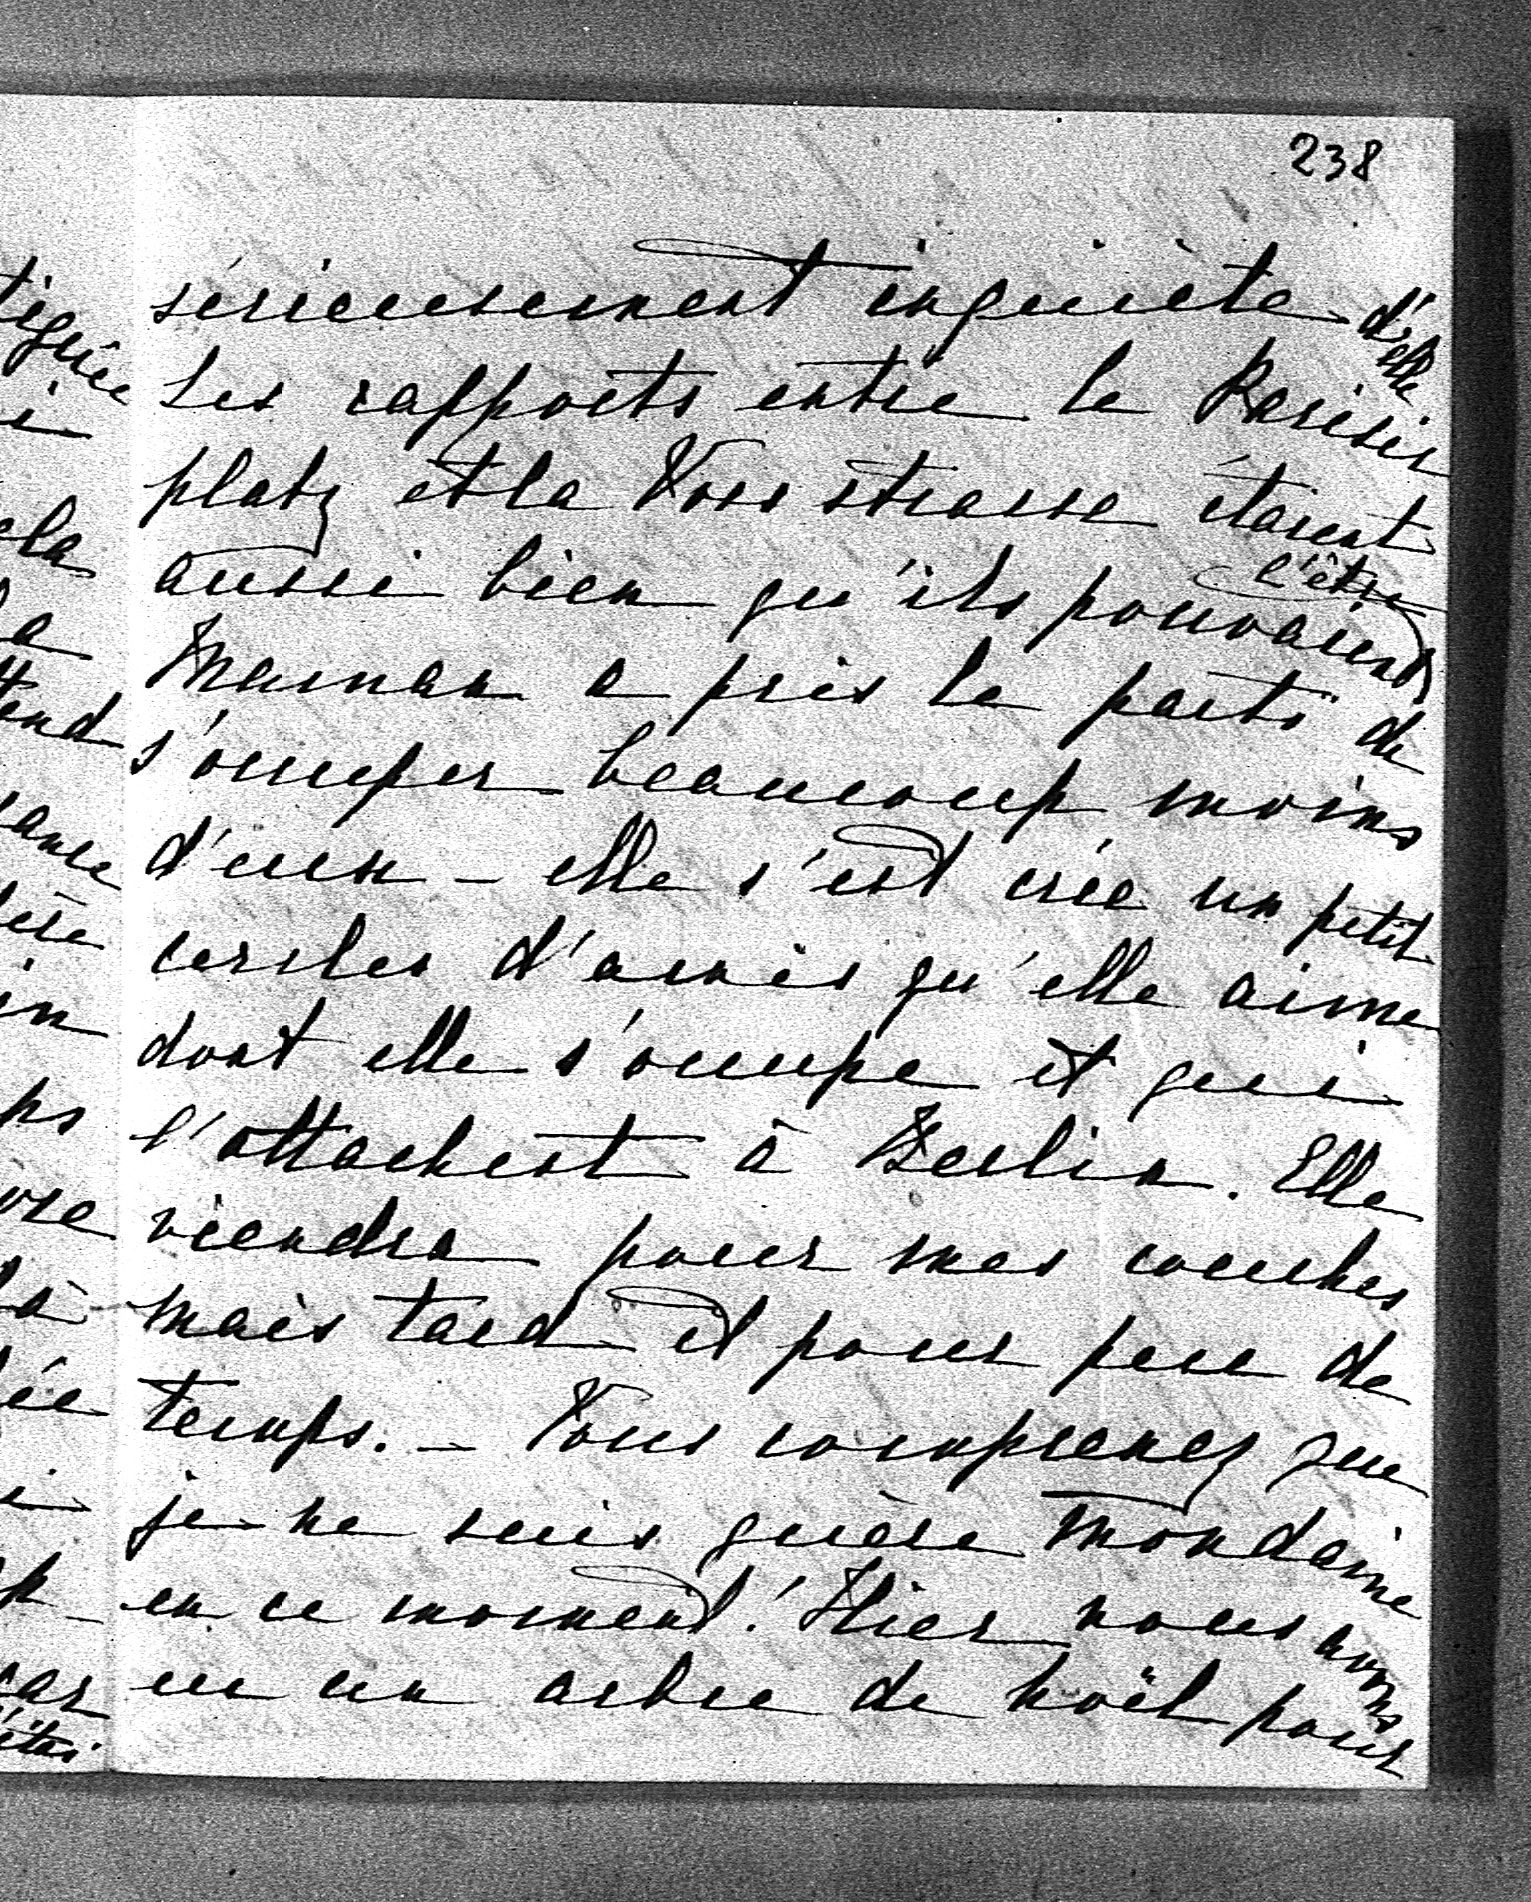 238
sérieusement inquiète d'elle
Les rapports entre le Pariser
platz et la Voss strasse étaient
aussi bien qu'ils pouvaient l'être
Maman a pris le parti de
s'occuper beaucoup moins
d'eux – elle s'est crée un petit
cercles d'amis qu'elle aime
dont elle s'occupe et qui
l'attachent à Berlin. Elle
viendra pour mes couches
mais tard et pour peu de
temps. – Vous comprenez que
je ne suis guère mondaine
en ce moment! Hier nous avons
eu un arbre de Noël pour